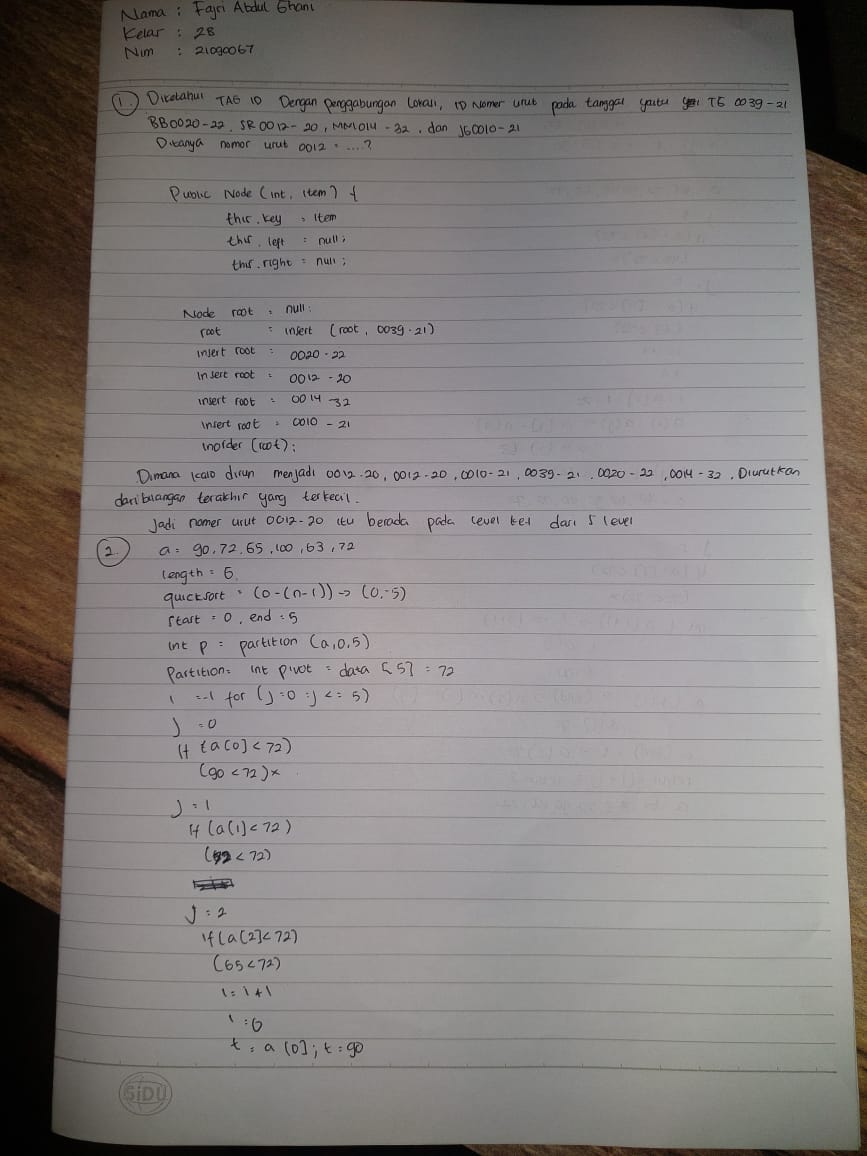 Nama : Fajri Abdul Ghani
Kelas : 28
Nim : 21090067
1. Diketahui TAG ID Dengan penggabungan Lokasi, ID Nomer urut pada tanggal yaitu TG 0039-21
BB0020-22, SR 0012-20, MM1014-32, dan JG0010-21
Ditanya nomor urut 0012 = ....?
Public Node (int, item) {
this.key = Item
this.left = null;
this.right = null;
Node root = null;
root = insert (root, 0039-21)
insert root = 0020-22
Insert root = 0012-20
insert root = 0014-32
insert root = 0010-21
Inorder (root);
Dimana kalo dirun menjadi 0012-20, 0012-20, 0010-21, 0039-21, 0020-22, 0014-32, Diurutkan
dari bilangan terakhir yang terkecil.
Jadi nomer urut 0012-20 itu berada pada level ke1 dari 5 level
2. a = 90, 72, 65, 100, 63, 72
length = 6
quicksort = (0-(n-1)) -> (0,-5)
start = 0, end = 5
int p = partition (a,0,5)
Partition = int pivot = data [5] = 72
i =-1 for (j=0 ; j <= 5)
j = 0
if (a[0] < 72)
(90 < 72) x
j = 1
if (a(1] < 72)
( < 72)
j = 2
if (a[2] < 72)
(65 < 72)
i = i + 1
i = 0
t = a [0]; t = 90
SiDU